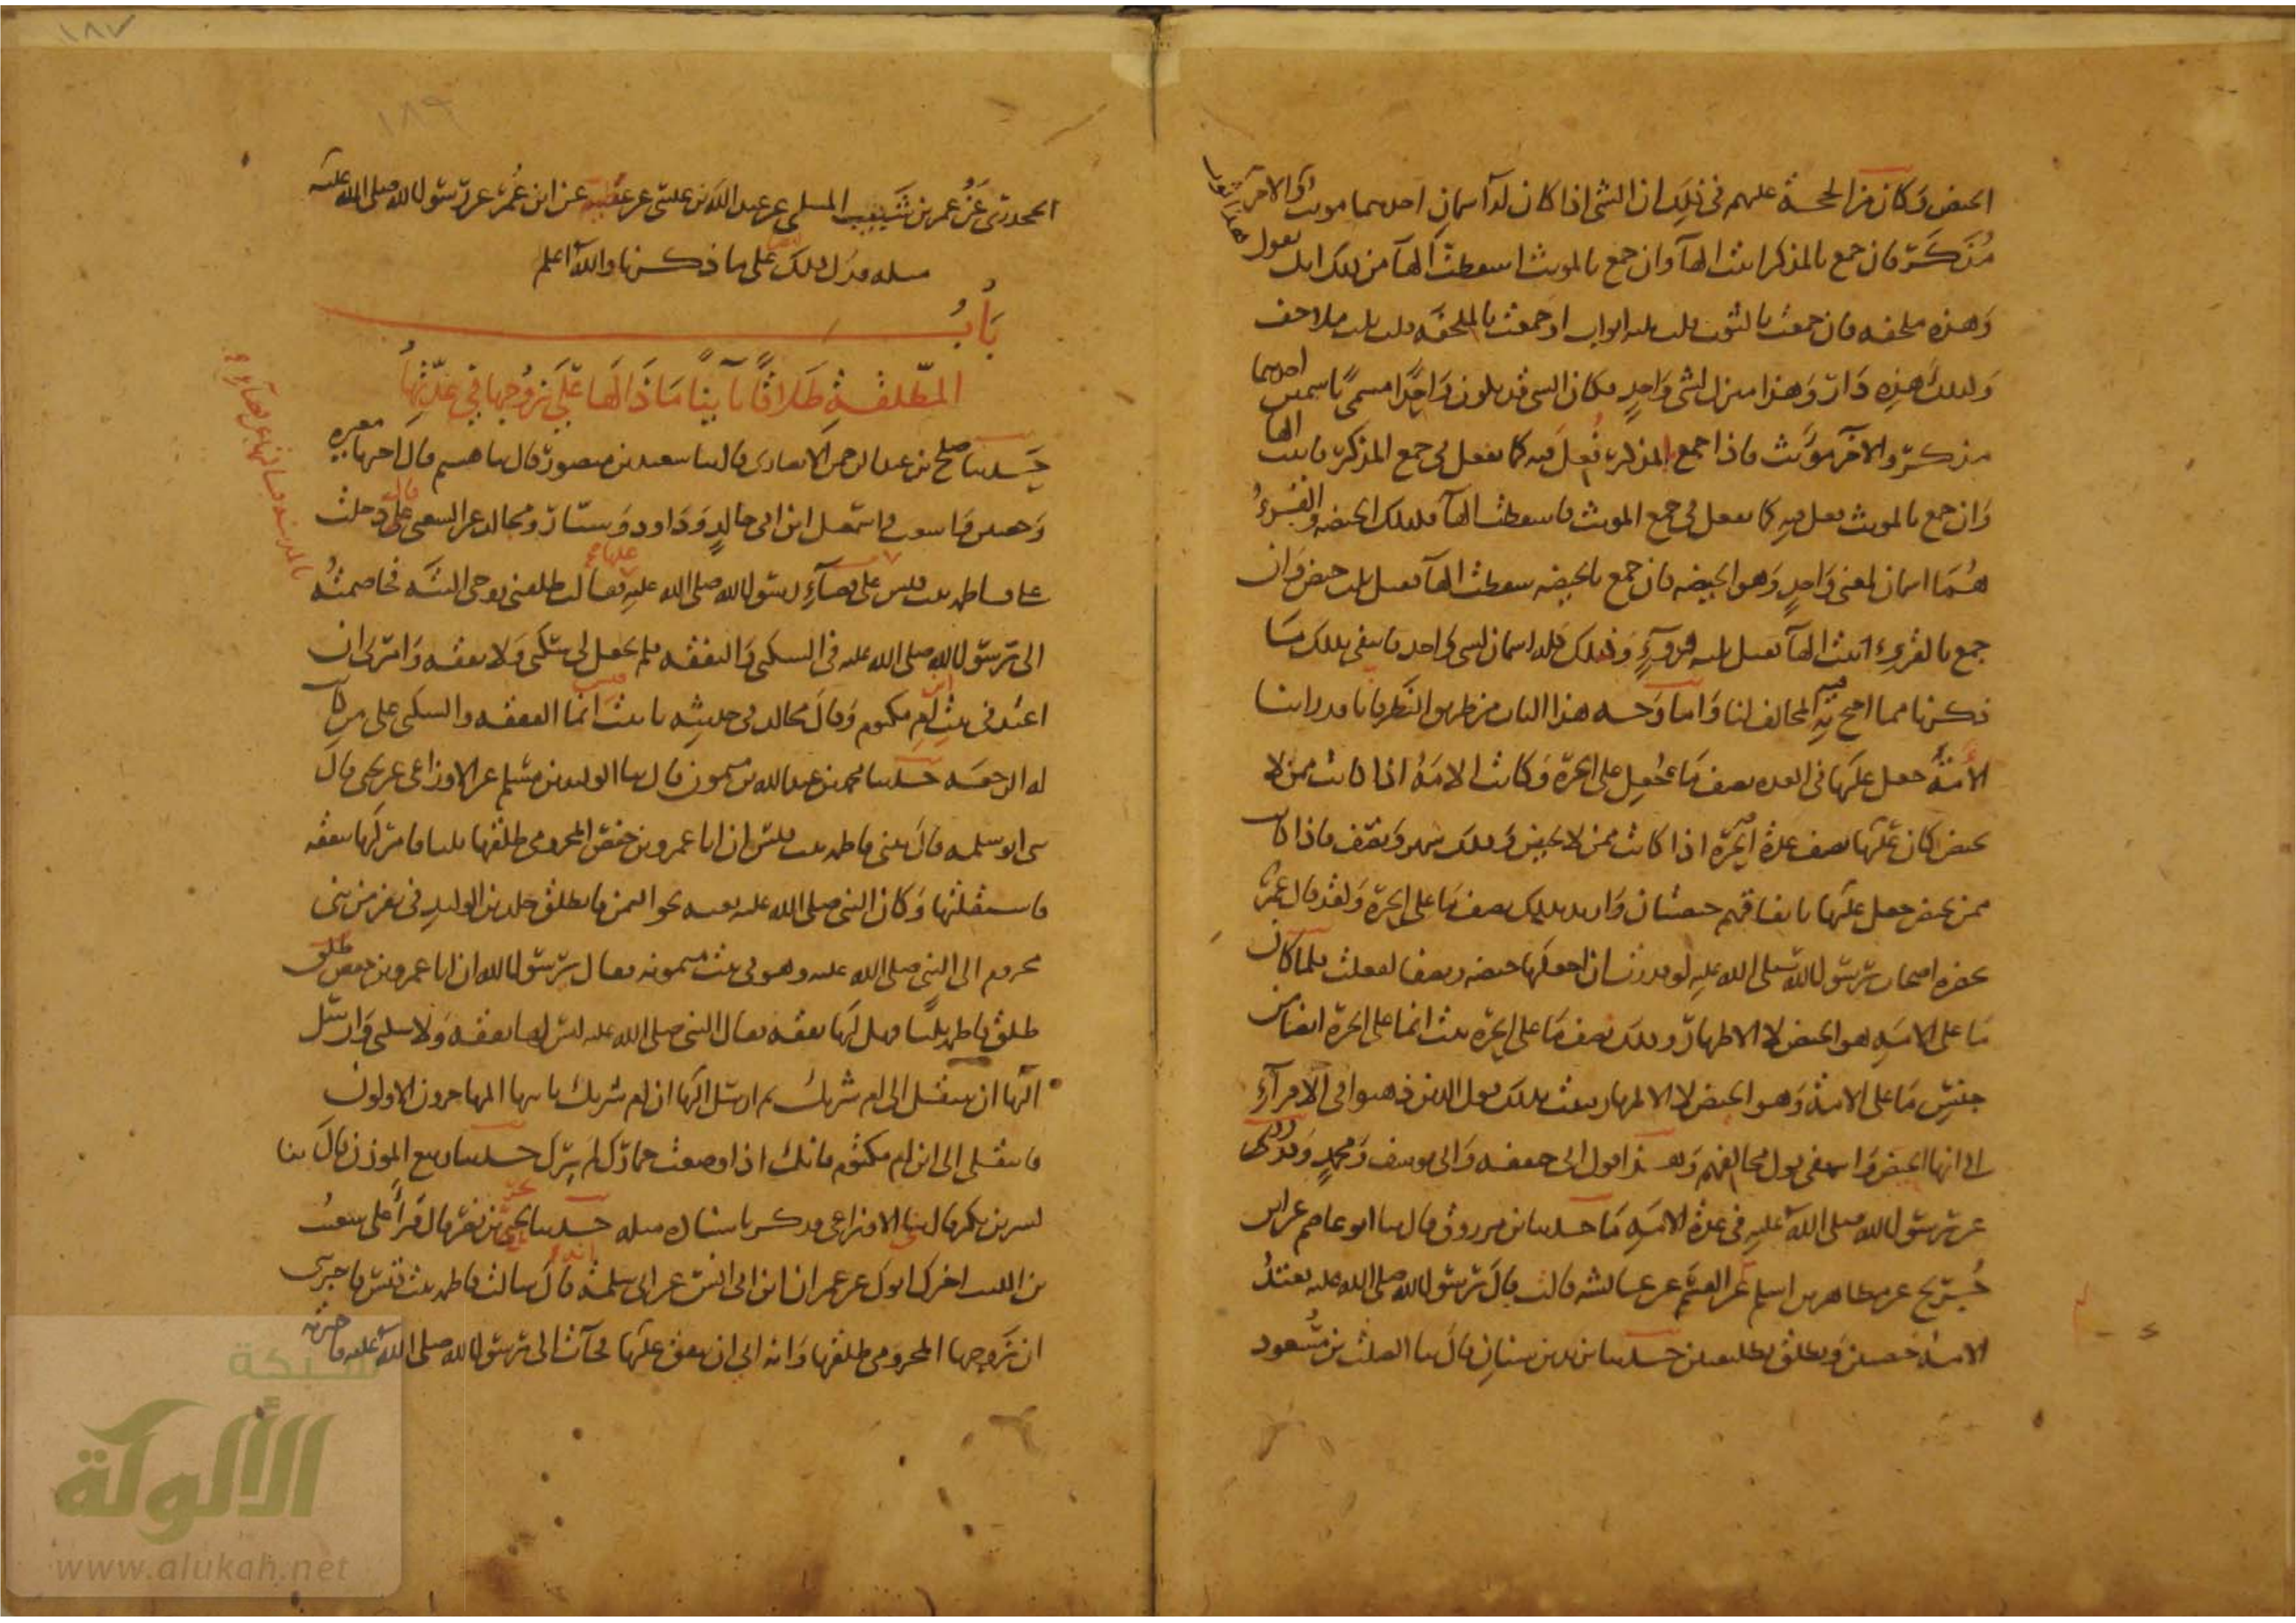 الحيض وكان من الحجة عليهم في ذلك ان الشي اذا كان له اسمان احدهما مونث والاخر
مذكر فان جمع بالمذكر اثبت الها وان جمع بالمونث اسقطت الها من ذلك انك تقول هذا ثوب
وهذه ملحفه فان جمعت بالثوب قلت ثلثه اثواب او جمعت بالملحفه قلت ثلث ملاحف
وكذلك هذه دار وهذا منزل لشى واحد فكان الشى قد يكون واحدا مسمى باسمين احدهما
مذكر والاخر مونث فاذا جمع بالمذكر فعل فيه كما يفعل في جمع المذكر فاثبت الها
وان جمع بالمونث فعل فيه كما يفعل في جمع المونث فاسقطت الها فكذلك الحيضه والقرء
هما اسمان لمعنى واحد وهو الحيضه فان جمع بالحيضه سقطت الها فقيل ثلث حيض وان
جمع بالقرء اثبت الها فقيل ثلثه قروء وذلك كله اسمان لشى واحد فانتفى بذلك ما
ذكرنا مما احتج به المخالف لنا واما وجه هذا الباب من طريق النظر فانا قد راينا
الامة جعل عليها في العده نصف ما جعل على الحرة وكانت الامة اذا كانت ممن لا
تحيض كان عليها نصف عدة الحرة اذا كانت ممن لا تحيض وذلك شهر ونصف فاذا كانت
ممن تحيض جعل عليها باتفاقهم حيضتان واريد بذلك نصف ما على الحرة ولقد قال عمر
بحضرة اصحاب رسول الله صلى الله عليه لو قدرت ان اجعلها حيضه ونصفا لفعلت فلما كان
ما على الامه هو الحيض لا الاطهار وذلك نصف ما على الحرة ثبت ان ما على الحرة ايضا من
جنس ما على الامة وهو الحيض لا الاطهار فثبت بذلك قول الذين ذهبوا في الاقراء
الى انها الحيض وانتفى قول مخالفهم وهذا قول ابي حنيفه وابي يوسف ومحمد وقد روي
عن رسول الله صلى الله عليه في عدة الامه ما حدثنا ابن مرزوق قال ثنا ابو عاصم عن ابن
جريج عن مظاهر بن اسلم عن القسم عن عائشه قالت قال رسول الله صلى الله عليه تعتد
الامة حيضتين وتطلق تطليقتين حدثنا يزيد بن سنان قال ثنا الصلت بن مسعود
الجحدري عن عمر بن شبيب المسلي عن عبد الله بن عيسى عن عطية عن ابن عمر عن رسول الله صلى الله عليه
مثله فدل ذلك على ما ذكرنا والله اعلم
باب
المطلقة طلاقا باينا ماذا لها على زوجها في عدتها
حدثنا صلح بن عبد الرحمن الانصارى قال ثنا سعيد بن منصور قال ثنا هشيم قال اخبرنا مغيره
وحصين واشعث واسمعيل ابن ابي خالد وداود وسيار ومجالد عن الشعبي قال دخلت
على فاطمه بنت قيس بالمدينه فسالتها عن قضاء رسول الله صلى الله عليه عليها فقالت طلقني زوجي البته فخاصمته
الى رسول الله صلى الله عليه في السكنى والنفقه فلم يجعل لي سكنى ولا نفقه وامرني ان
اعتد في بيت ابن ام مكتوم وقال مجالد في حديثه يا بنت قيس انما النفقه والسكنى على من كانت
له الرجعه حدثنا محمد بن عبد الله بن ميمون قال ثنا الوليد بن مسلم عن الاوزاعي عن يحيى قال
ثنى ابو سلمه قال ثتنى فاطمه بنت قيس ان ابا عمرو بن حفص المخزومي طلقها ثلثا فامر لها بنفقه
فاستقلتها وكان النبي صلى الله عليه بعثه نحو اليمن فانطلق خلد بن الوليد في نفر من بني
مخزوم الى النبي صلى الله عليه وهو في بيت ميمونه فقال يا رسول الله ان ابا عمرو بن حفص طلق
طلق فاطمه ثلثا فهل لها نفقه فقال النبي صلى الله عليه ليس لها نفقه ولا سكنى وارسل
اليها ان تنتقل الى ام شريك ثم ارسل اليها ان ام شريك ياتيها المهاجرون الاولون
فانتقلي الى ابن ام مكتوم فانك اذا وضعت خمارك لم يرك حدثنا ربيع الموذن قال ثنا
بشر بن بكر قال ثنى الاوزاعي فذكر باسناده مثله حدثنا بحر بن نصر قال قرا على شعيب
بن الليث اخبرك ابوك عن عمران ابن ابي انس عن ابي سلمة انه قال سالت فاطمه بنت قيس فاخبرتني
ان زوجها المخزومي طلقها وانه ابى ان ينفق عليها فجات الى رسول الله صلى الله عليه فاخبرته
شبكة
الألوكة
www.alukah.net